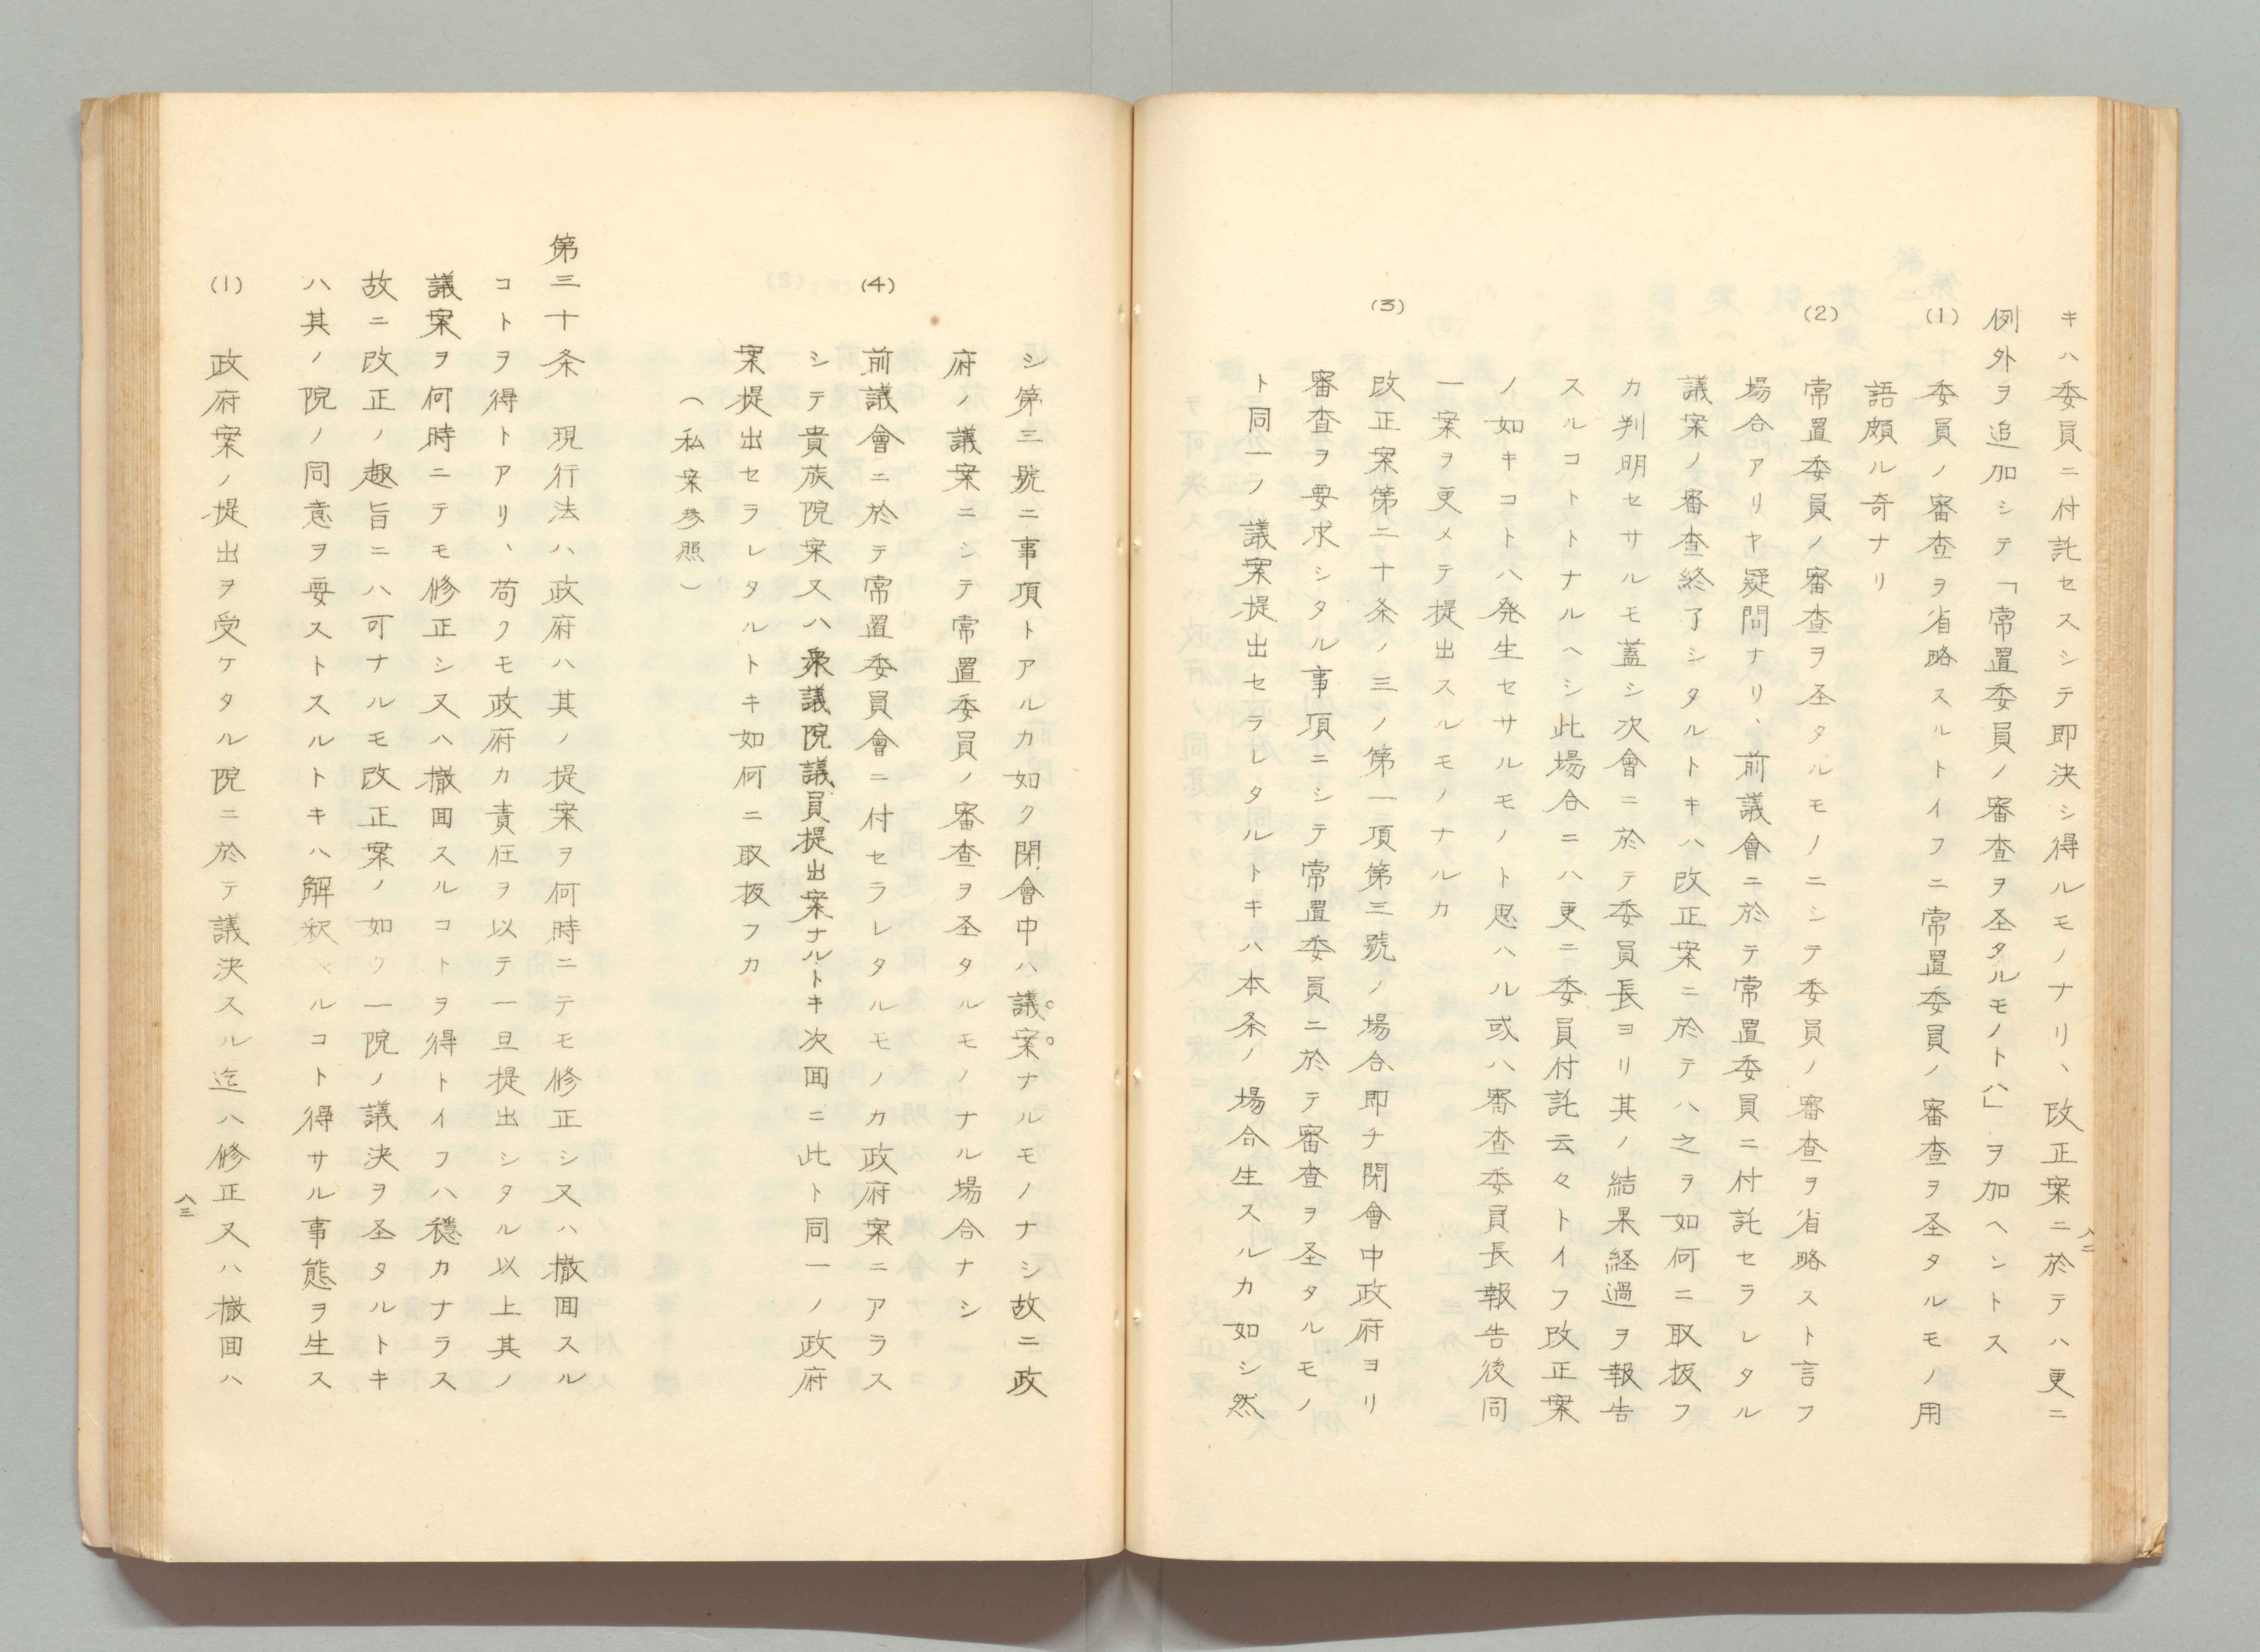 キハ委員ニ付託セスシテ即決シ得ルモノナリ、改正案ニ於テハ更ニ
例外ヲ追加シテ「常置委員ノ審査ヲ圣タルモノトハ」ヲ加ヘントス
(1) 委員ノ審査ヲ省略スルトイフニ常置委員ノ審査ヲ圣タルモノ用
語頗ル奇ナリ
(2) 常置委員ノ審査ヲ圣タルモノニシテ委員ノ審査ヲ省略スト言フ
場合アリヤ疑問ナリ、前議會ニ於テ常置委員ニ付託セラレタル
議案ノ審査終了シタルトキハ改正案ニ於テハ之ヲ如何ニ取扱フ
カ判明セサルモ蓋シ次會ニ於テ委員長ヨリ其ノ結果経過ヲ報告
スルコトトナルヘシ此場合ニハ更ニ委員付託云々トイフ改正案
ノ如キコトハ発生セサルモノト思ハル或ハ審査委員長報告後同
一案ヲ更メテ提出スルモノナルカ
(3) 改正案第二十条ノ三ノ第一項第三號ノ場合即チ閉會中政府ヨリ
審査ヲ要求シタル事項ニシテ常置委員ニ於テ審査ヲ圣タルモノ
ト同一ノ議案提出セラレタルトキハ本条ノ場合生スルカ如シ然
八二
シ第三號ニ事項トアルカ如ク閉會中ハ議案ナルモノナシ故ニ政
府ノ議案ニシテ常置委員ノ審査ヲ圣タルモノナル場合ナシ
(4) 前議會ニ於テ常置委員會ニ付セラレタルモノカ政府案ニアラス
シテ貴族院案又ハ衆議院議員提出案ナルトキ次囬ニ此ト同一ノ政府
案提出セラレタルトキ如何ニ取扱フカ
(私案参照)
第三十条 現行法ハ政府ハ其ノ提案ヲ何時ニテモ修正シ又ハ撤囬スル
コトヲ得トアリ、苟クモ政府カ責任ヲ以テ一旦提出シタル以上其ノ
議案ヲ何時ニテモ修正シ又ハ撤囬スルコトヲ得トイフハ穏カナラス
故ニ改正ノ趣旨ニハ可ナルモ改正案ノ如ク一院ノ議決ヲ圣タルトキ
ハ其ノ院ノ同意ヲ要ストスルトキハ解釈スルコト得サル事態ヲ生ス
(1) 政府案ノ提出ヲ受ケタル院ニ於テ議決スル迄ハ修正又ハ撤囬ハ
八三